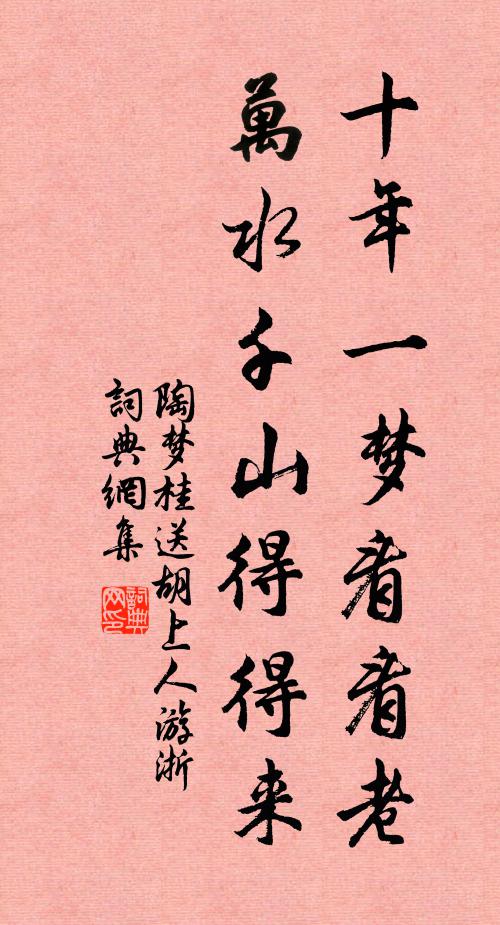 十年一梦看看老
萬水千山得得来
陶梦桂送胡上人游浙
詞典網集
詞典网印